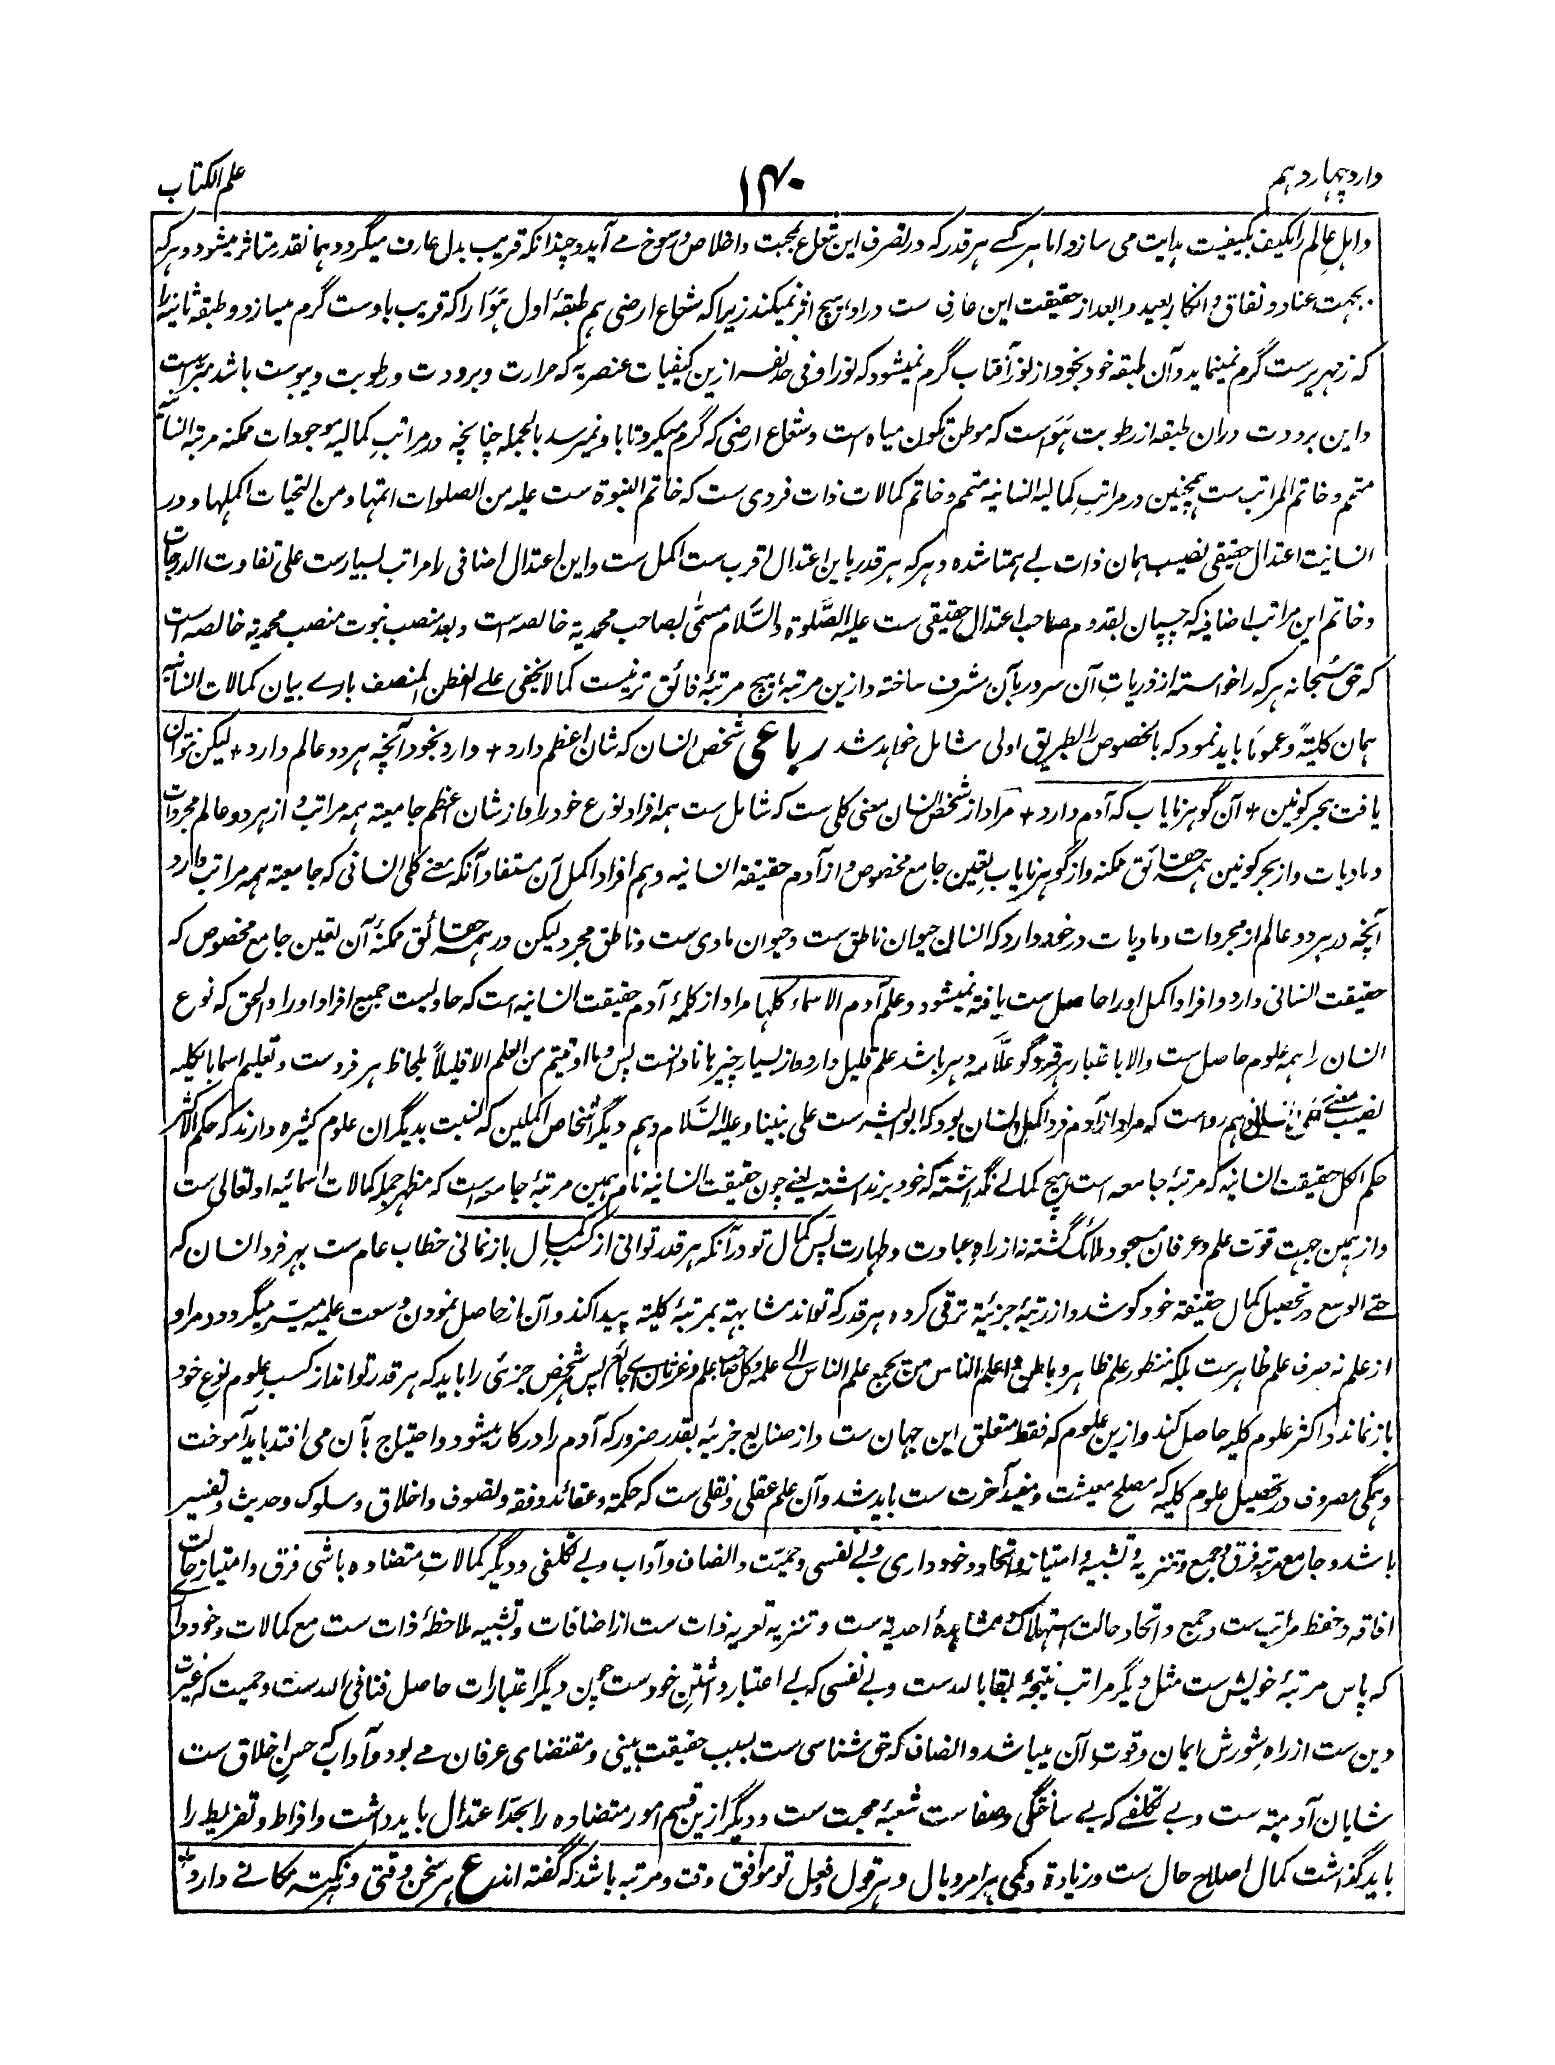 وارد چهاردهم
۱۴۰
علم الکتاب
و اهل عالم را مکیف بکیفیت هدایت می سازد اما هر کسے هر قدر که در تصرف این شعاع بمحبت و اخلاص و رسوخ مے آید و چندانکه قریب بدل عارف میگردد همانقدر متاثر میشود و هر که
بجهت عناد و نفاق و انکار بعید و ابعد از حقیقت این عارف ست در او هیچ اثر نمیکند زیرا که شعاع ارضی هم طبقهٔ اول هوا را که قریب باوست گرم میسازد و طبقه ثانیه را
که زمهریرست گرم نمینماید و آن طبقه خود بخود از نور آفتاب گرم نمیشود که نور او فی حد نفسه ازین کیفیات عنصریه که حرارت و برودت و رطوبت و یبوست باشد مبراست
و این برودت دران طبقه از رطوبت هواست که موطن تکون میاه است و شعاع ارضی که گرم میکرد تا باو نمیرسد بالجمله چنانچه در مراتب کمالیه موجودات ممکنه مرتبه انسانیه
متمم و خاتم المراتب ست همچنین در مراتب کمالیه انسانیه متمم و خاتم کمالات ذات فردی ست که خاتم النبوة ست علیه من الصلوات اتمها و من التحیات اکملها و در
انسانیت اعتدال حقیقی نصیب همان ذات بے همتا شده و هر که هر قدر باین اعتدال اقرب ست اکمل ست و این اعتدال اضافی را مراتب بسیارست علی تفاوت الدرجات
و خاتم این مراتب اضافیه که چسپان بقدوم صاحب اعتدال حقیقی ست علیه الصلوة والسلام مسمی بصاحب محمدیة خالصه است و بعد منصب نبوت منصب محمدیة خالصه است
که حق سبحانه هر که را خواسته از ذریات آن سرور بآن مشرف ساخته و ازین مرتبه هیچ مرتبهٔ فائق تر نیست کما لا یخفی علے الفطن المنصف بارے بیان کمالات انسانیه
همان کلیةً و عموماً باید نمود که بالخصوص را بطریق اولی شامل خواهد شد رباعی شخص انسان که شان اعظم دارد + دارد بخود آنچه هر دو عالم دارد + لیکن نتوان
یافت ببحر کونین + آن گوهر نایاب که آدم دارد + مراد از شخص انسان معنی کلی ست که شامل ست همه افراد نوع خود را و از شان اعظم جامعیة همه مراتب و از هر دو عالم مجردات
و مادیات و از بحر کونین همه حقائق ممکنه و از گوهر نایاب تعین جامع مخصوص و از آدم حقیقة انسانیه و هم افراد اکمل آن مستفاد آنکه معنے کلی انسانی که جامعیة همه مراتب دارد
آنچه در هر دو عالم از مجردات و مادیات در خود دارد که انسان حیوان ناطق ست و حیوان مادی ست و ناطق مجرد لیکن در همه حقائق ممکنهٔ آن تعین جامع مخصوص که
حقیقت انسانی دارد و افراد اکمل او را حاصل ست یافته نمیشود و علم آدم الاسماء کلها مراد از کلمهٔ آدم حقیقت انسانیه است که حاویست جمیع افراد او را و الحق که نوع
انسان را همه علوم حاصل ست والا باعتبار هر فرد گو علامه دهر باشد علم قلیل دارد و از بسیار چیزها نادانست پس و ما اوتیتم من العلم الا قلیلاً بلحاظ هر فردست و تعلیم اسما بالکلیه
نصیب معنے انسانی و هم رواست که مراد از آدم فرد اکمل انسان بود که ابوالبشرست علی نبینا و علیه السلام و هم دیگر اشخاص اکملین که نسبت بدیگران علوم کثیره دارند که للاکثر
حکم الکل حقیقت انسانیه که مرتبهٔ جامعه است هیچ کمالے نگذاشته که خود برنداشته یعنے چون حقیقت انسانیه نام همین مرتبهٔ جامعه است که مظهر جمله کمالات اسمائیه او تعالی ست
و از همین جهت قوت علم و عرفان مسجود ملائک گشته نه از راه عبادت و طهارت پس کمال تو در آنکه هر قدر توانی از کسب کمال باز نمانی خطاب عام ست بهر فرد انسان که
حتے الوسع در تحصیل کمال حقیقة خود کوشد و از رتبهٔ جزئیة ترقی کرده هر قدر که تواند مشابهة بمرتبهٔ کلیة پیدا کند و آن باز حاصل نمودن وسعت علمیه میسر میگردد و مراد
از علم نه صرف علم ظاهرست بلکه منظور علم ظاهر و باطن و اعلم الناس من یجمع علم الناس الے علمه و کل صاحب علم و غرثان اے جائع پس شخص جزئی را باید که هر قدر تواند از کسب علوم نوع خود
باز نماند و اکثر علوم کلیه حاصل کند و ازین علوم که فقط متعلق این جهان ست و از صنایع جزئیه بقدر ضرور که آدم را در کار میشود و احتیاج بآن می افتد باید آموخت
و همگی مصروف در تحصیل علوم کلیه که مصلح معیشت و مفید آخرت ست باید شد و آن علم عقلی و نقلی ست که حکمة و عقائد و فقه و تصوف و اخلاق و سلوک و حدیث و تفسیر
باشد و جامع مرتبه فرق و جمع و تنزیه و تشبیه و امتیاز و اتحاد و خودداری و بے نفسی و حمیت و انصاف و آداب و بے تکلفی و دیگر کمالات متضاده باشی فرق و امتیاز حالت
افاقه و حفظ مراتب ست و جمع و اتحاد حالت استهلاک و مشاهدهٔ احدیة ست و تنزیه تعریه ذات ست از اضافات و تشبیه ملاحظهٔ ذات ست مع کمالات و خودداری
که پاس مرتبهٔ خویش ست مثل دیگر مراتب نتیجهٔ بقا بالله ست و بے نفسی که بے اعتبار داشتن خودست چون دیگر اعتبارات حاصل فنا فی الله ست و حمیت که غیرت
دین ست از راه شورش ایمان و قوت آن میباشد و انصاف که حق شناسی ست بسبب حقیقت بینی و مقتضای عرفان مے بود و آداب که حسن اخلاق ست
شایان آدمیة ست و بے تکلفے که بے ساختگی و صفاست شعبهٔ محبت ست و دیگر ازین قسم امور متضاده را بحد اعتدال باید داشت و افراط و تفریط را
باید گذاشت کمال اصلاح حال ست و زیادة و کمی هر امر وبال و هر قول و فعل تو موافق وقت و مرتبه باشد که گفته اند ع هر سخن وقتی و هر نکته مکانے دارد